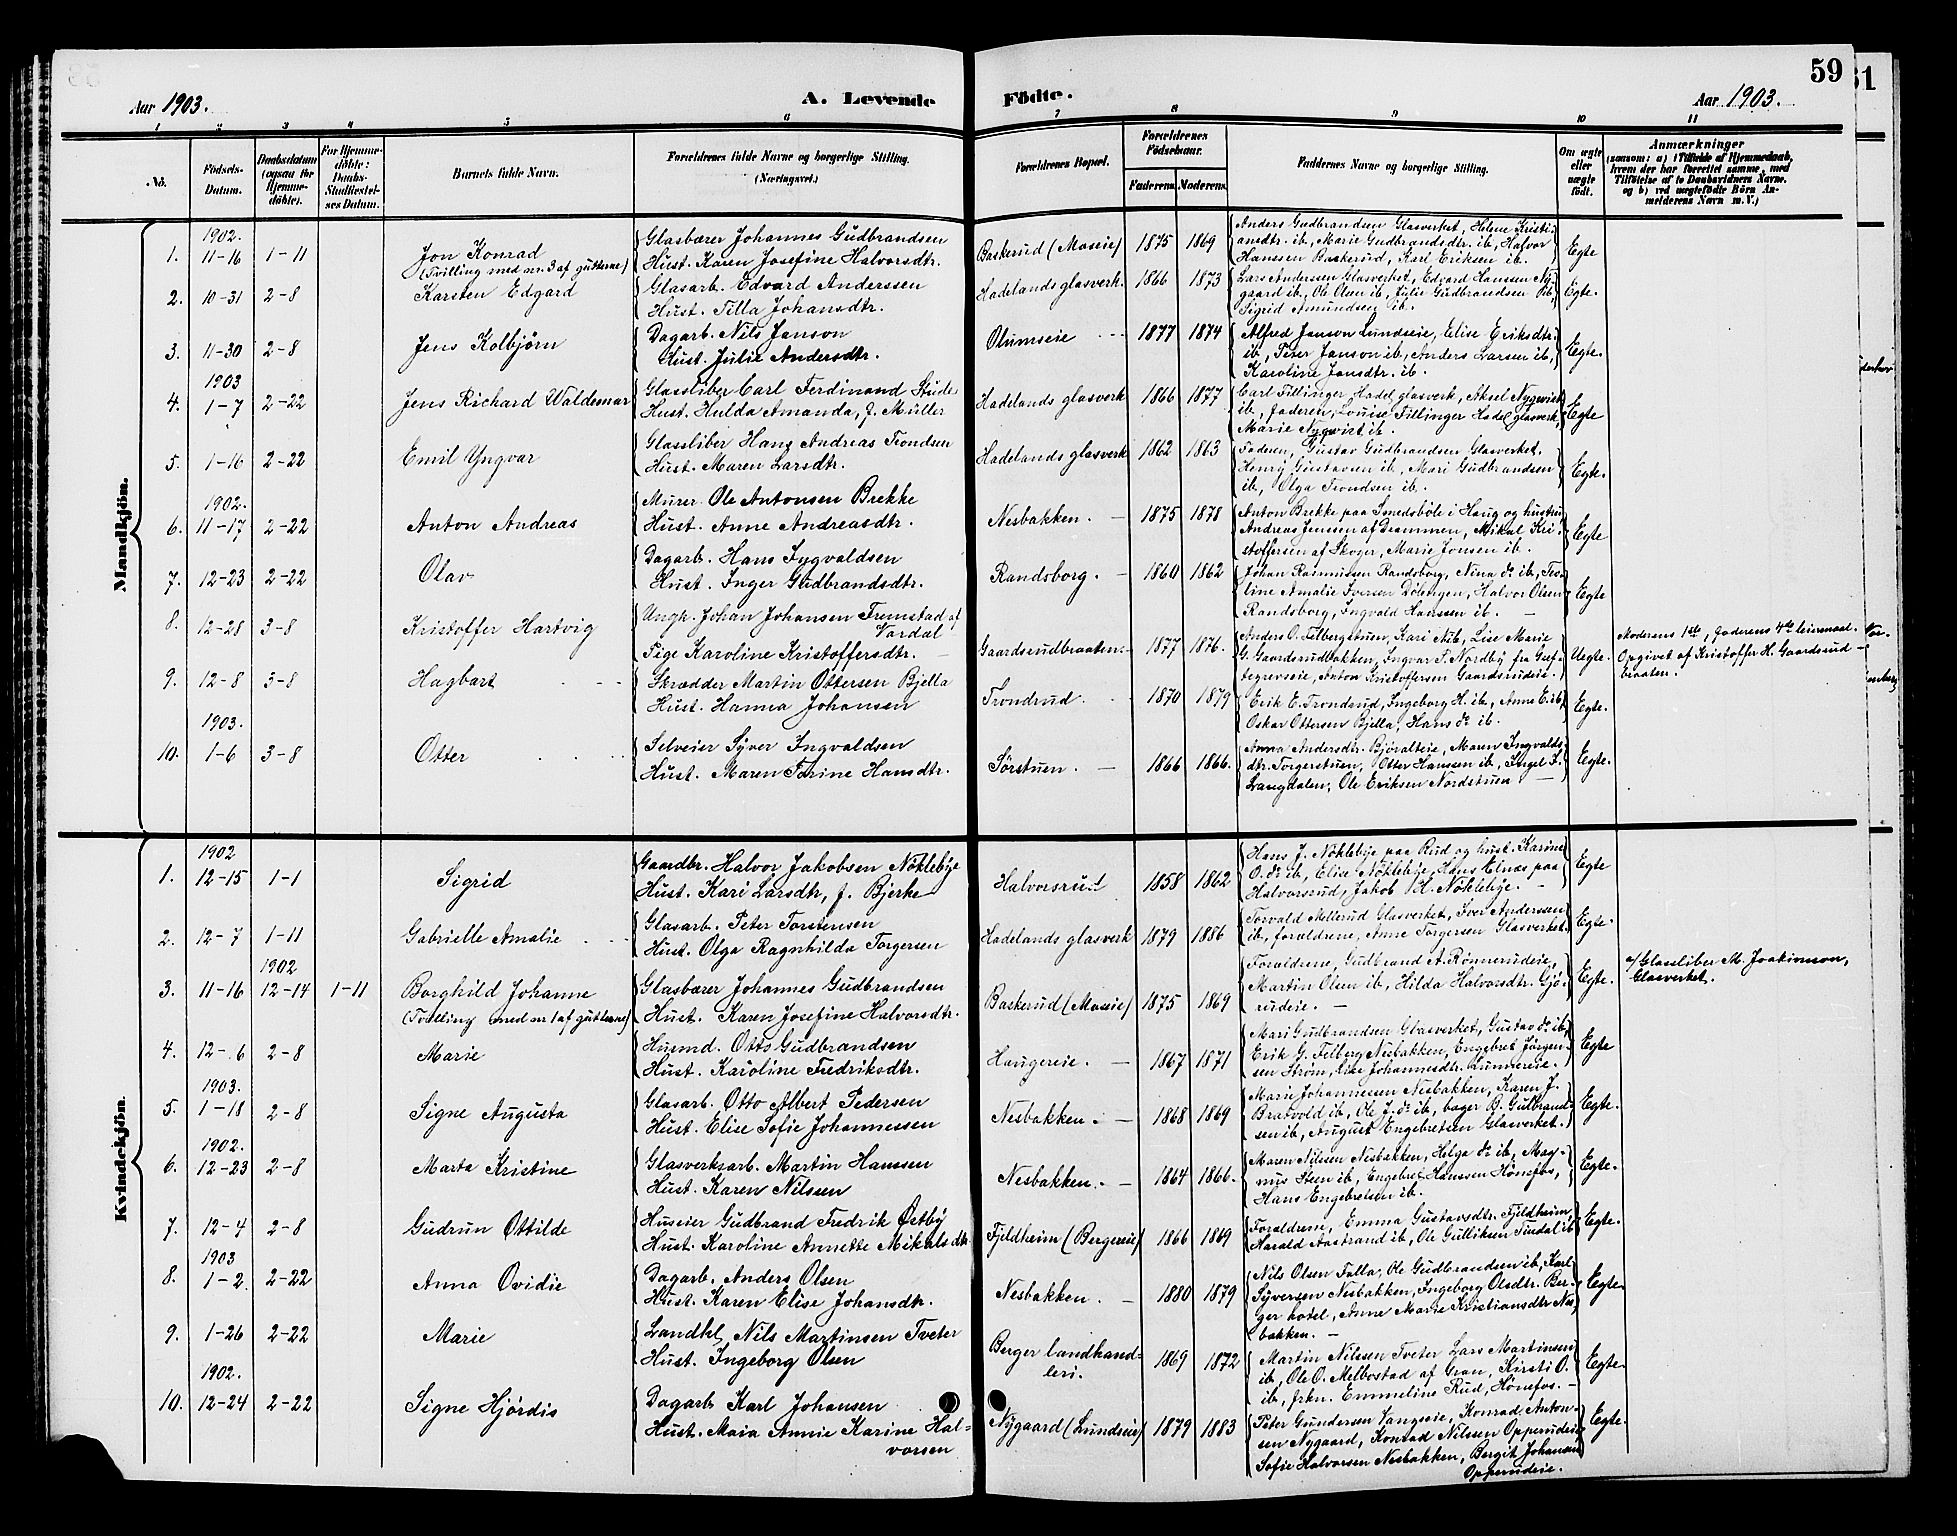 Aar 1903.
A. Levende Födte.
Aar 1903.
59
1 2 3 4 5 6 7 8 9 10 11
No.
Födsels-Datum.
Daabsdatum (ogsaa for Hjemmedöbte).
For Hjemmedöbte: Daabs-Stadfæstelses Datum.
Barnets fulde Navn.
Forældrenes fulde Navne og borgerlige Stilling.
(Næringsvei.)
Forældrenes Bopæl.
Forældrenes Födselsaar.
Faderens. Moderens.
Faddernes Navne og borgerlige Stilling.
Om ægte eller uægte födt.
Anmærkninger
(saasom: a) i Tilfælde af Hjemmedaab,
hvem der har forrettet samme, med
Tilföielse af to Daabsvidners Navne,
og b) ved uægtefödte Börn Anmelderens Navn m. V.)
Mandkjön.
1902.
1. 11-16 1-11 Jon Konrad
(Tvilling med nr. 3 af jenterne)
Glasbærer Johannes Gudbrandsen
Hust. Karen Josefine Halvorsdtr.
Baskerud (Moseie) 1875 1869
Anders Gudbrandsen Glasverket, Helene Kristi-
ansdtr. ib., Marie Gudbrandsdtr. ib., Halvor
Hanssen Baskerud, Karl Eriksen ib.
Egte
2. 10-31 2-8 Karsten Edgard
Glasarb. Edvard Anderssen
Hust. Tilla Johansdtr.
Hadelands glasverk. 1866 1873
Lars Anderssen Glasverket, Edvard Hanssen Ny-
gaard ib., Ole Olsen ib., Julie Gudbrandsen ib.,
Sigrid Amundseie ib.
Egte.
3. 11-30 2-8 Jens Kolbjörn
Dagarb. Nils Jenson
Hust. Julie Andersdtr.
Olumseie 1877 1874
Alfred Jenson Lundseie, Elise Eriksdtr.
ib., Peter Janson ib., Anders Larsen ib.,
Karoline Jonsdtr. ib.
Egte.
1903
4. 1-7 2-22 Jens Richard Waldemar
Glassliber Carl Ferdinand Stude
Hust. Hulda Amanda, f. Müller
Hadelands glasverk 1866 1877
Carl Tillinger Hadel. glasverk, Aksel Nyqwist
ib., faderen, Louise Tillinger Hadel. glasverk,
Marie Nyqwist ib.
Egte
5. 1-16 2-22 Emil Yngvar
Glassliber Hans Andreas Trondsen
Hust. Maren Larsdtr.
Hadelands glasverk 1862 1863
Faderen, Gustav Gudbrandsen Glasverket,
Henry Gustavsen ib., Mari Gudbrandsen
ib., Olga Trondsen ib.
Egte.
1902.
6. 11-17 2-22 Anton Andreas
Murer Ole Antonsen Brekke
Hust. Anne Andreasdtr.
Nesbakken. 1875 1878
Anton Brekke paa Smedsböle i Haug og hustru,
Andreas Jensen af Drammen, Mikal Kri-
stoffersen af Skoger, Marie Jonsen ib.
Egte
7. 12-23 2-22 Olav
Dagarb. Hans Sygvaldsen
Hust. Inger Gudbrandsdtr.
Randsborg. 1860 1862
Johan Rasmussen Randsborg, Nina do ib., Teo-
line Amalie Iversen Dölengen, Halvor Olsen
Randsborg, Ingvald Hanssen ib.
Egte
8. 12-28 3-8 Kristoffer Hartvig
Ungk. Johan Johansen Tremstad af
Vardal
Pige Karoline Kristoffersdtr.
Gaardsrudbraaten. 1877 1876.
Anders O. Felbergstuen, Kari A. ib., Lise Marie
G. Gaardsrudbakken, Ingvar T. Nordby fra Gref-
segrevseie, Anton Kristoffersen Gaardsrudeie.
Uegte.
Moderens 1ste, faderens 4de leiermaal.
Opgivet af Kristoffer H. Gaardsrud-
braaten.
9. 12-8 3-8 Hagbart
Skrædder Martin Ottersen Bjella
Hust. Hanna Johansen
Trondrud. 1870 1879
Erik E. Trondsrud, Ingeborg H. ib., Anne E. ib.,
Oskar Ottersen Bjella, Hans do ib.
Egte.
1903.
10. 1-6 3-8 Otter
Selveier Syver Ingvaldsen
Hust. Maren Torine Hansdtr.
Sörstuen. 1866 1866.
Anna Andersdtr. Björalteie, Maren Ingvalds-
dtr. Torgerstuen, Otter Hanssen ib., Ingel I.
Langdalen, Ole Eriksen Nordstuen
Egte.
Kvindekjön.
1902
1. 12-15 1-1 Sigrid
Gaardbr. Halvor Jakobsen Nöklebye
Hust. Kari Larsdtr., f. Bjerke
Halvorsrud 1858 1862
Hans J. Nöklebye paa Rud og hust. Karine
O. do ib., Elise Nöklebye, Hans Elnæs paa
Halvorsrud, Jakob H. Nöklebye.
Egte
2. 12-7 1-11 Gabrielle Amalie
Glasarb. Peter Torstensen
Hust. Olga Ragnhilda Torgersen
Hadelands glasverk 1879 1886
Torvald Mellerud Glasverket, Iver Anderssen
ib., forældrene, Anne Torgersen Glasverket.
Egte.
1902
3. 11-16 12-14 1-11 Borghild Johanne
(Tvilling med nr. 1 af gutterne)
Glasbærer Johannes Gudbrandsen
Hust. Karen Josefine Halvorsdtr.
Baskerud (Moseie) 1875 1869
Forældrene, Gudbrand A. Rönnerudeie,
Martin Olsen ib., Hilda Halvorsdtr. Gjö-
rudeie.
Egte.
a/ Glassliber M. Joakimson,
Glasverket.
4. 12-6 2-8 Marie
Husmd. Otto Gudbrandsen
Hust. Karoline Fredriksdtr.
Haugereie. 1867 1871
Mari Gudbrandsen Glasverket, Gustav do ib.,
Erik G. Felberg Nesbakken, Engebret Jörgen-
sen Ström, Lise Johannesdtr. Lunnereie.
Egte
1903.
5. 1-18 2-8 Signe Augusta
Glasarb. Otto Albert Pedersen
Hust. Elise Sofie Johannessen
Nesbakken. 1868 1869
Marie Johannessen Nesbakken, Karen J.
Bratvold ib., Ole J. do ib., bager B. Gulbrand-
sen ib., August Engebretsen Glasverket.
Egte.
1902.
6. 12-23 2-8 Marta Kristine
Glasverksarb. Martin Hanssen
Hust. Karen Nilssen
Nesbakken. 1864 1866.
Maren Nilsen Nesbakken, Helga do ib., Mag-
nus Steen ib., Engebret Hanssen Hönefos,
Hans Engebretsen ib.
Egte.
7. 12-4 2-8 Gudrun Ottilde
Huseier Gudbrand Fredrik Östby
Hust. Karoline Annette Mikalsdtr.
Fjeldheim (Bergereie) 1866 1869
Forældrene, Emma Gustavsdtr. Fjeldheim,
Harald Aastrand ib., Ole Gulliksen Tindal ib.
Egte.
1903
8. 1-2 2-22 Anna Ovidie
Dagarb. Anders Olsen
Hust. Karen Elise Johansdtr.
Nesbakken. 1880 1879
Nils Olsen Falla, Ole Gudbrandsen ib., Karl
Syversen Nesbakken, Ingeborg Olsdtr. Ber-
ger hotel, Anne Marie Kristiansdtr. Nes-
bakken.
Egte.
9. 1-26 2-22 Marie
Landhl. Nils Martinsen Tveter
Hust. Ingeborg Olsen
Berger landhand-
leri. 1869 1872
Martin Nilsen Tveter, Lars Martinsen
ib., Ole O. Melbostad af Gran, Kirsti O.
ib., frkn. Emmeline Rud, Hönefos.
Egte.
1902.
10. 12-24 2-22 Signe Hjördis
Dagarb. Karl Johansen
Hust. Maia Annie Karine Hal-
vorsen
Nygaard (Lundseie) 1879 1883
Peter Gundersen Vangseie, Konrad Anton-
sen Nygaard, Konrad Nilsen Opperudeie,
Sofie Halvorsen Nesbakken, Bergit Johansen
Opperudeie.
Egte.